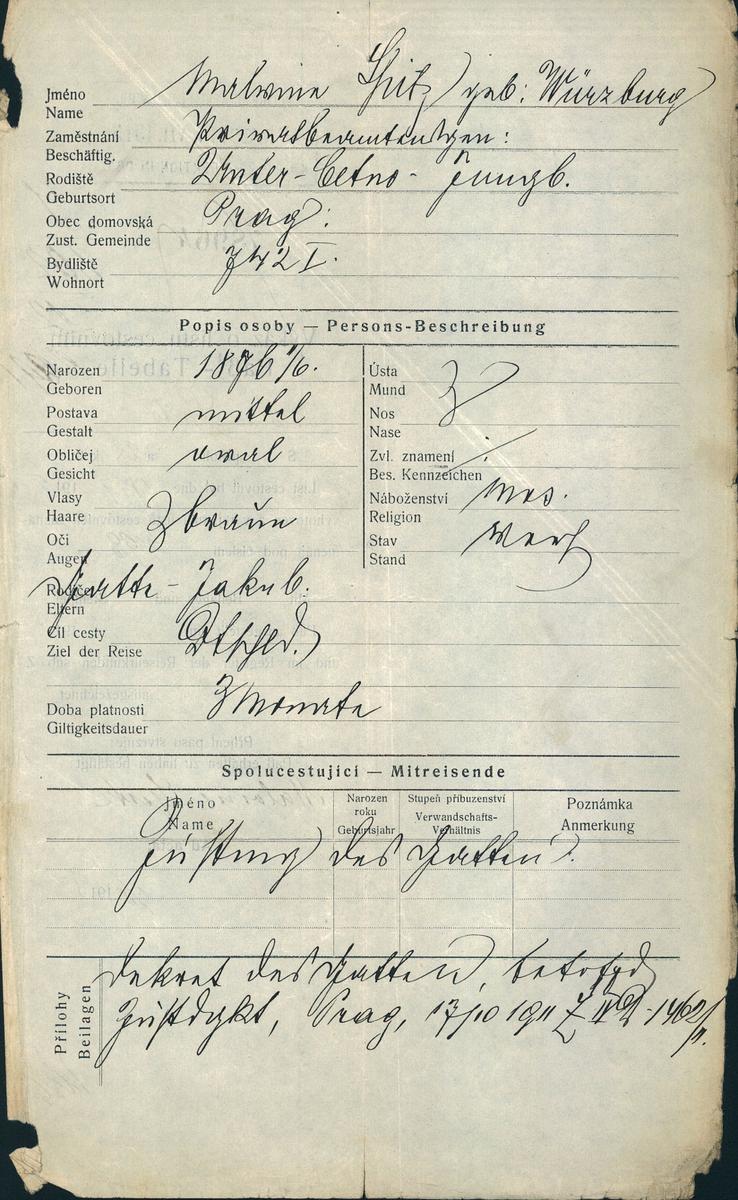 Jméno Malvine Spitz geb: Würzburg
Name
Zaměstnání Privatbeamtensgen:
Beschäftig.
Rodiště Unter-Cetno- Jungb.
Geburtsort
Obec domovská Prag:
Zust. Gemeinde
Bydliště 742 I.
Wohnort
Popis osoby — Persons-Beschreibung
Narozen 1876
Geboren
Postava mittel
Gestalt
Obličej oval
Gesicht
Vlasy
Haare braun
Oči
Augen
Ústa
Mund
Nos
Nase
Zvl. znamení
Bes. Kennzeichen
Náboženství mos.
Religion
Stav verh
Stand
Rodiče Gatte - Jakub.
Eltern
Cíl cesty Dtschld.
Ziel der Reise
3 Monate
Doba platnosti
Giltigkeitsdauer
Spolucestující — Mitreisende
Jméno
Name
Narozen
roku
Geburtsjahr
Stupeň příbuzenství
Verwandschafts-
Verhältnis
Poznámka
Anmerkung
des Gatten
Přílohy
Beilagen
Dekret des Gatten,
Prag, 17/10 1911